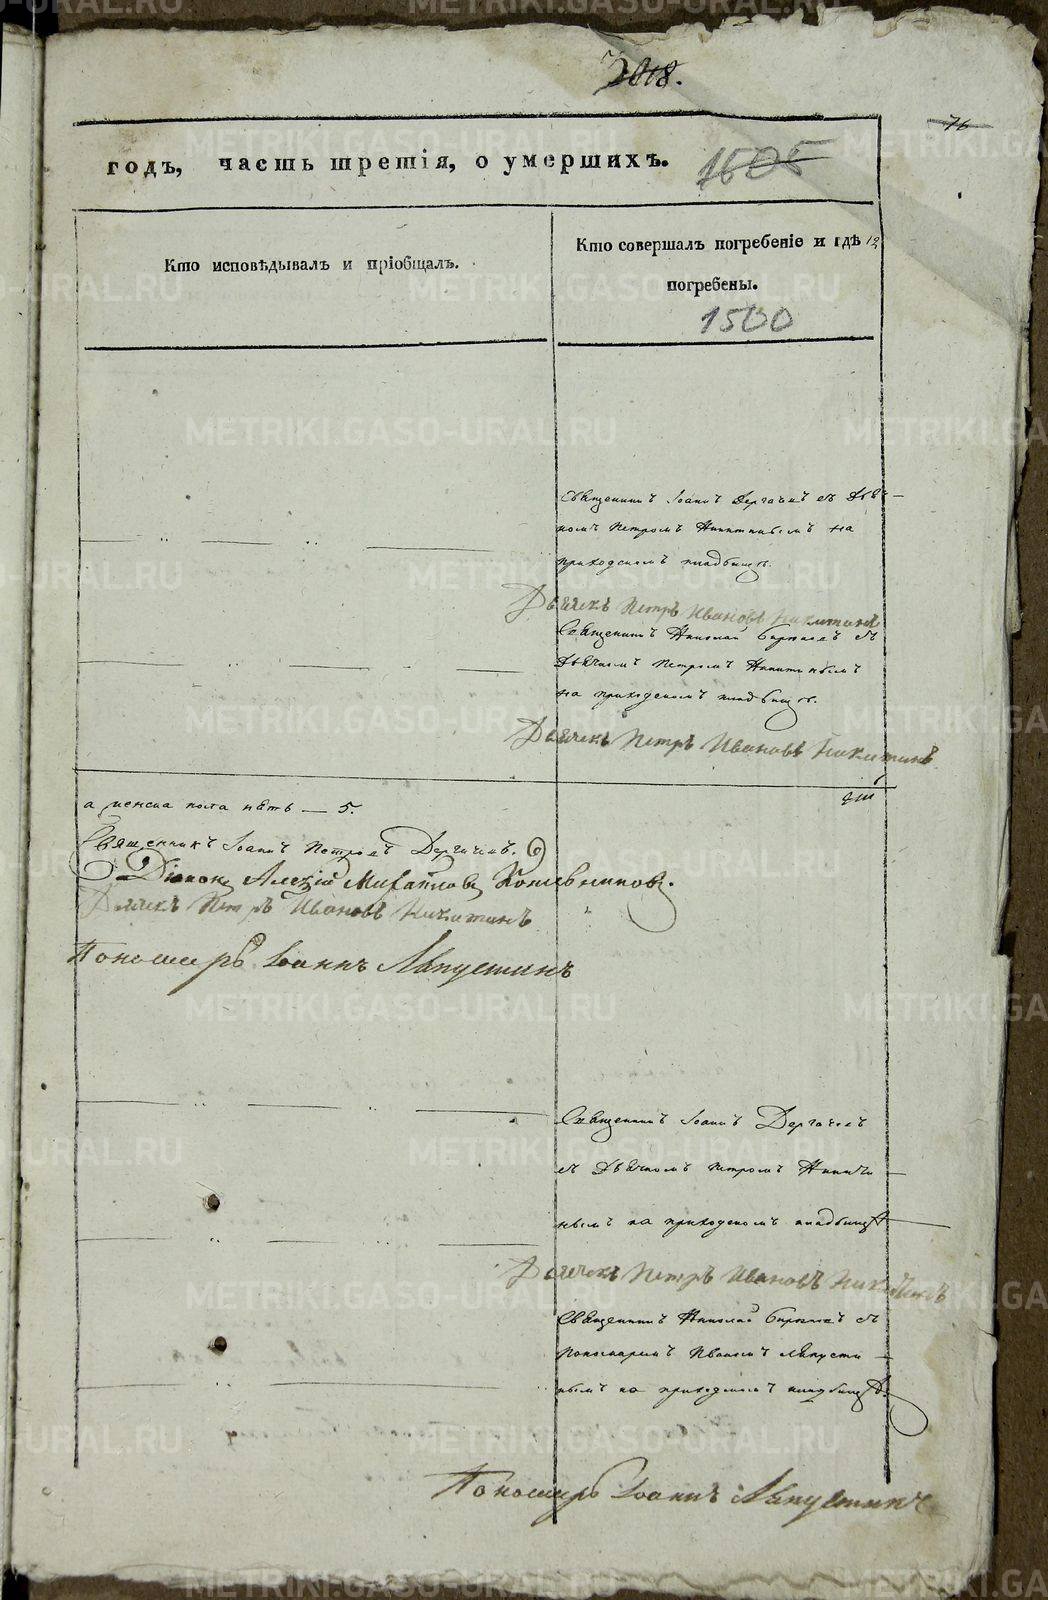 2018.
76
годъ, часть третія, о умершихъ. 1505
Кто исповѣдывалъ и пріобщалъ.
Кто совершалъ погребеніе и гдѣ
погребены.
1500
Священникъ Іоаннъ Дергачевъ съ Дьяч-
комъ Петромъ Никитинымъ на
приходскомъ кладбищѣ.
Дьячекъ Петръ Ивановъ Никитинъ
Священникъ Николай съ
Дьячкомъ Петромъ Никитинымъ
на приходскомъ кладбищѣ.
Дьячекъ Петръ Ивановъ Никитинъ
а женска пола пять — 5.
Священникъ Іоаннъ Петровъ Дергачевъ.
Діаконъ Алексій Михайловъ Кожевниковъ.
Дьячекъ Петръ Ивановъ Никитинъ
Пономарь Іоаннъ Лапустинъ
Священникъ Іоаннъ Дергачевъ
съ Дьячкомъ Петромъ Никити-
нымъ на приходскомъ кладбищѣ
Дьячекъ Петръ Ивановъ Никитинъ
Священникъ Николай съ
Пономаремъ Иваномъ Лапусти-
нымъ на приходскомъ кладбищѣ.
Пономарь Іоаннъ Лапустинъ
METRIKI.GASO-URAL.RU